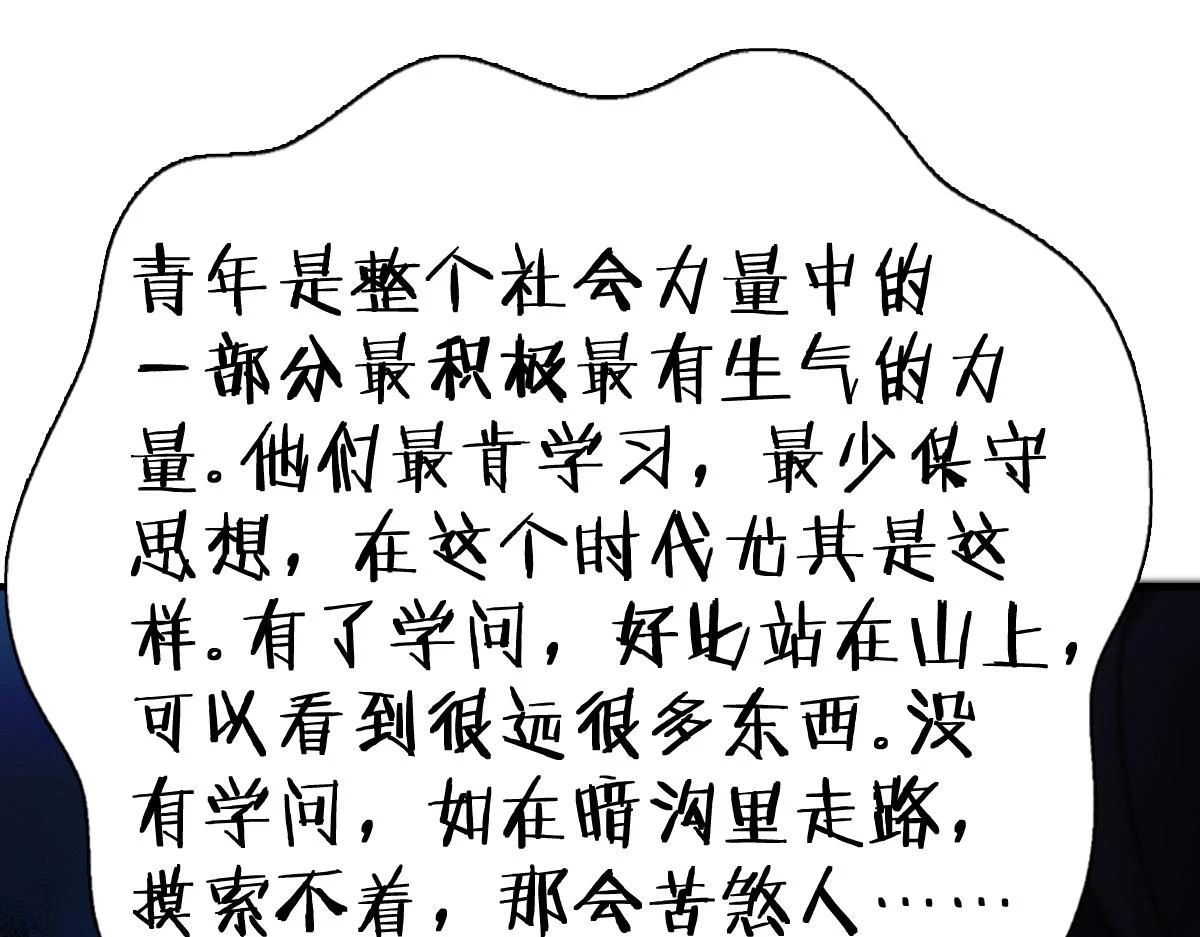 青年是整个社会力量中的
一部分最积极最有生气的力
量。他们最肯学习，最少保守
思想，在这个时代尤其是这
样。有了学问，好比站在山上，
可以看到很远很多东西。没
有学问，如在暗沟里走路，
摸索不着，那会苦煞人……